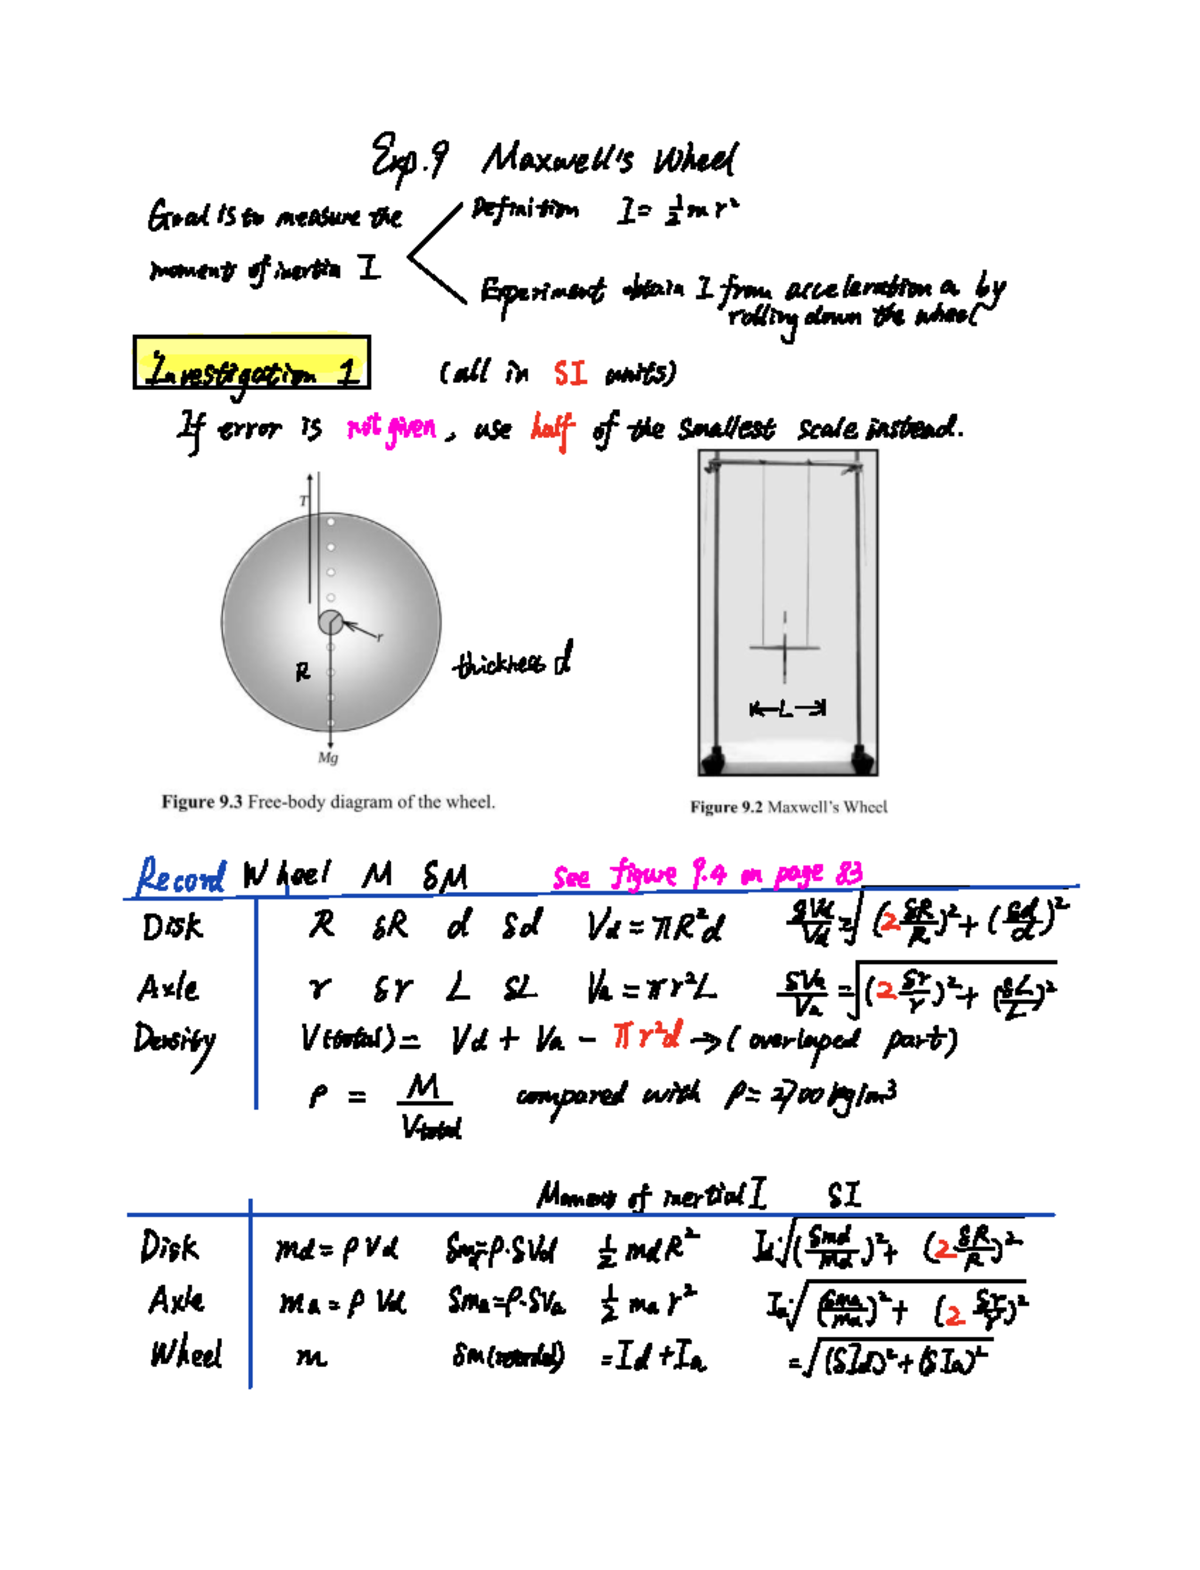 Exp.9 Maxwell's Wheel
Goal is to measure the
moment of inertia I
Definition I = ½ m r²
Experiment obtain I from acceleration a by
rolling down the wheel
Investigation 1 (all in SI units)
If error is not given, use half of the smallest scale instead.
T
r
R
thickness d
L
Mg
Figure 9.3 Free-body diagram of the wheel.
Figure 9.2 Maxwell's Wheel
Record Wheel M δM See figure 9.4 on page 83
Disk R δR d δd Vd = πR²d δVd/Vd = √(2 δR/R)² + (δd/d)²
Axle r δr L δL Va = πr²L δVa/Va = √(2 δr/r)² + (δL/L)²
Density V(total) = Vd + Va − πr²d → (overlaped part)
ρ = M/Vtotal compared with ρ = 2700 kg/m³
Moment of inertial I δI
Disk md = ρVd δmd = ρ·δVd ½ md R² Id·√(δmd/md)² + (2 δR/R)²
Axle ma = ρ Vd δma = ρ·δVa ½ ma r² Ia·√(δma/ma)² + (2 δr/r)²
Wheel m δm (recorded) = Id + Ia = √(δId)² + (δIa)²